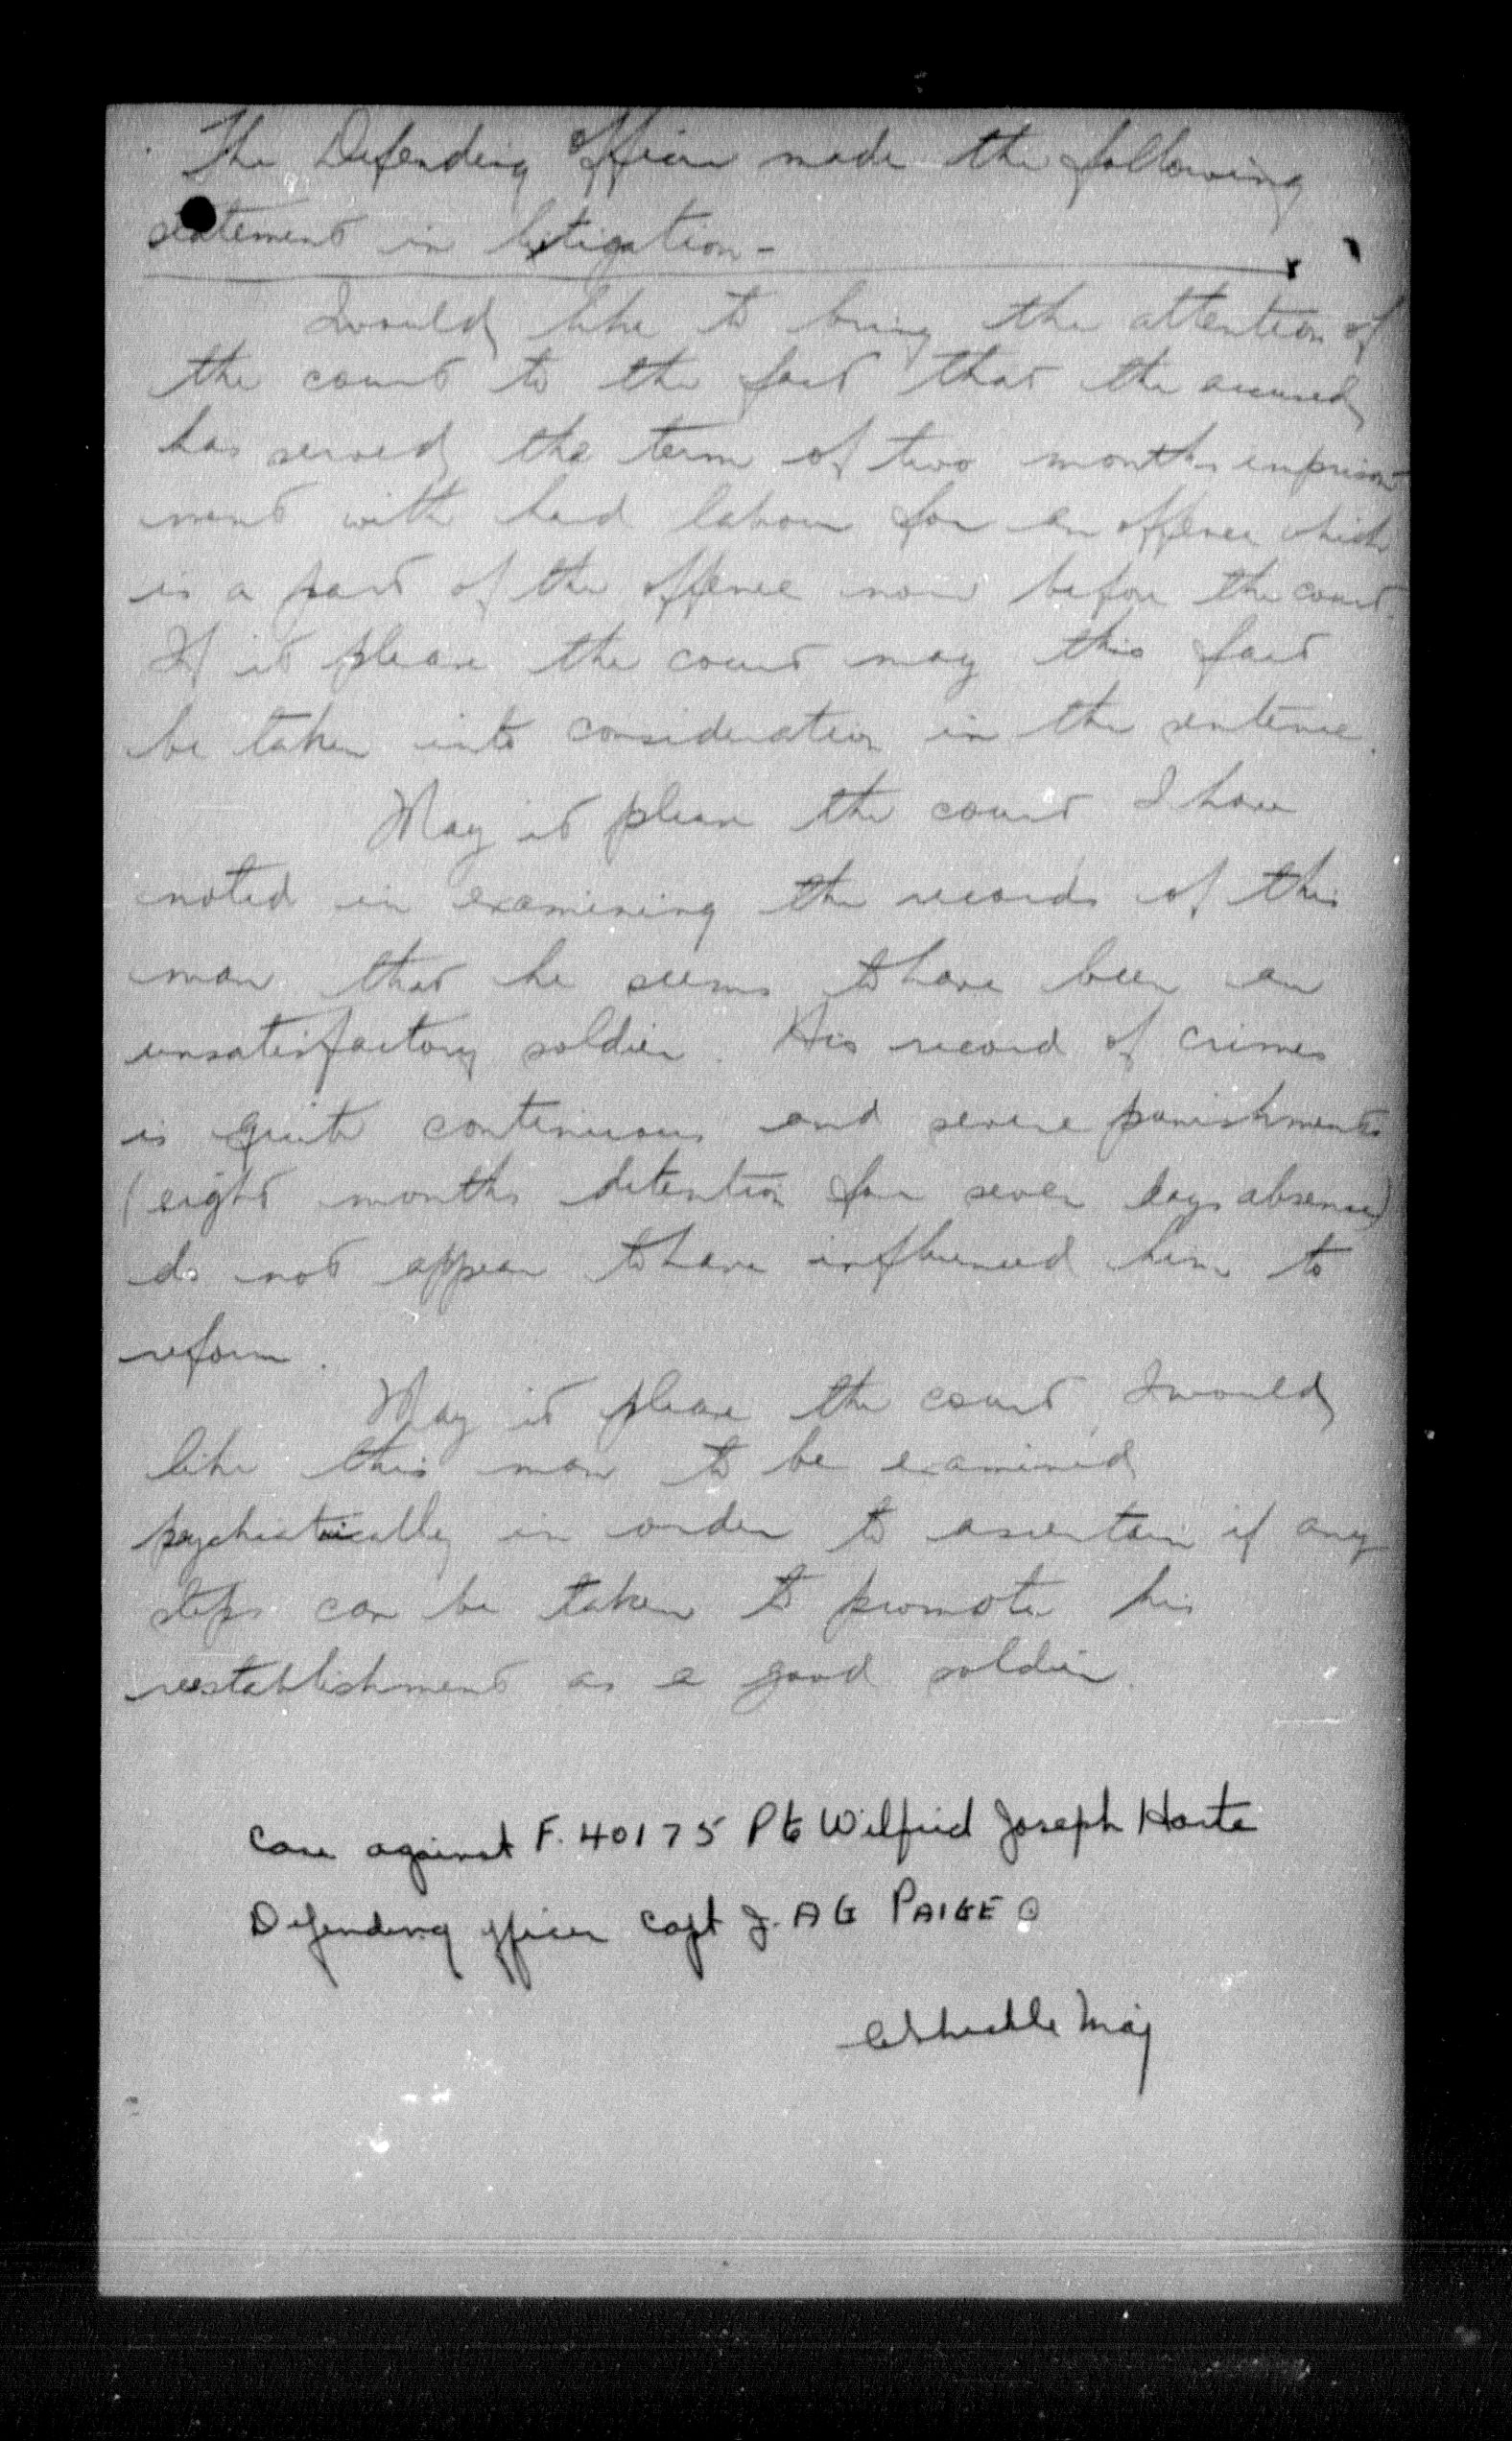 The Defending Officer made the following
statement in litigation -
I would like to bring the attention of
the court to the fact that the accused
has served the term of two months imprison-
ment with hard labour for an offence which
is a part of the offence now before the court.
If it please the court may this fact
be taken into consideration in the sentence.
May it please the court I have
noted in examining the records of this
man that he seems to have been an
unsatisfactory soldier. His record of crimes
is quite continuous and severe punishments
(eight months detention for seven days absence)
do not appear to have influenced him to
reform.
May it please the court I would
like this man to be examined
psychiatrically in order to ascertain if any
steps can be taken to promote his
reestablishment as a good soldier.
Case against F. 40175 Pte Wilfrid Joseph Harte
Defending officer Capt J. A G PAIGE
Maj